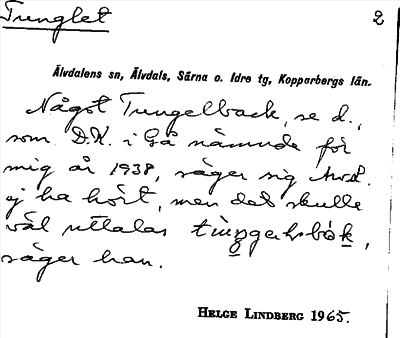 Tunglet 2
Älvdalens sn, Älvdals, Särna o. Idre tg, Kopparbergs län.
Något Tungelback, se d.,
som D.K. i Gå nämnde för
mig år 1938, säger sig
ej ha hört, men det skulle
väl uttalas
säger han.
HELGE LINDBERG 1965.